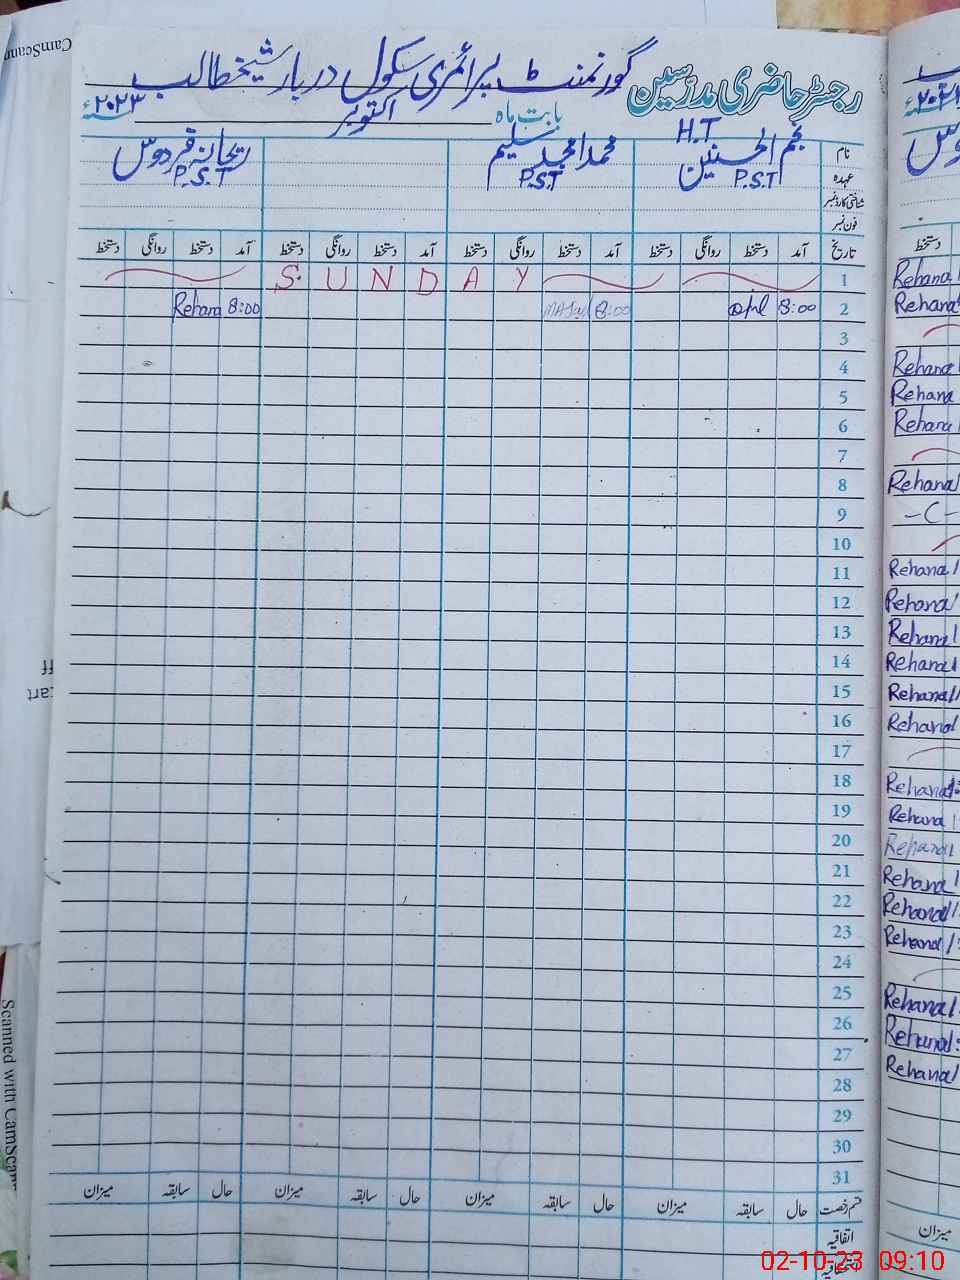 گورنمنٹ پرائمری سکول دربار شیخ طالب
رجسٹر حاضری مدرسین
بابت ماہ اکتوبر ۲۰۲۳ء
H.T
نام نجم الحسنین محمد امجد سلیم ریحانہ فردوس
عہدہ P.S.T P.S.T P.S.T
شناختی کارڈ نمبر
فون نمبر
تاریخ آمد دستخط روانگی دستخط آمد دستخط روانگی دستخط آمد دستخط روانگی دستخط آمد دستخط روانگی دستخط
1 S U N D A Y
2 8:00 8:00 8:00 Rehana
3
4
5
6
7
8
9
10
11
12
13
14
15
16
17
18
19
20
21
22
23
24
25
26
27
28
29
30
31
قسم رخصت حال سابقہ میزان حال سابقہ میزان حال سابقہ میزان حال سابقہ میزان
اتفاقیہ
دستخط
Rehana
Rehana
Rehana
Rehana
Rehana
Rehana
-C-
Rehana
Rehana
Rehana
Rehana
Rehana
Rehana
Rehana
Rehana
Rehana
Rehana
Rehana
Rehana
Rehana
Rehana
Rehana
میزان
CamScann
Scanned with CamScan
02-10-23 09:10